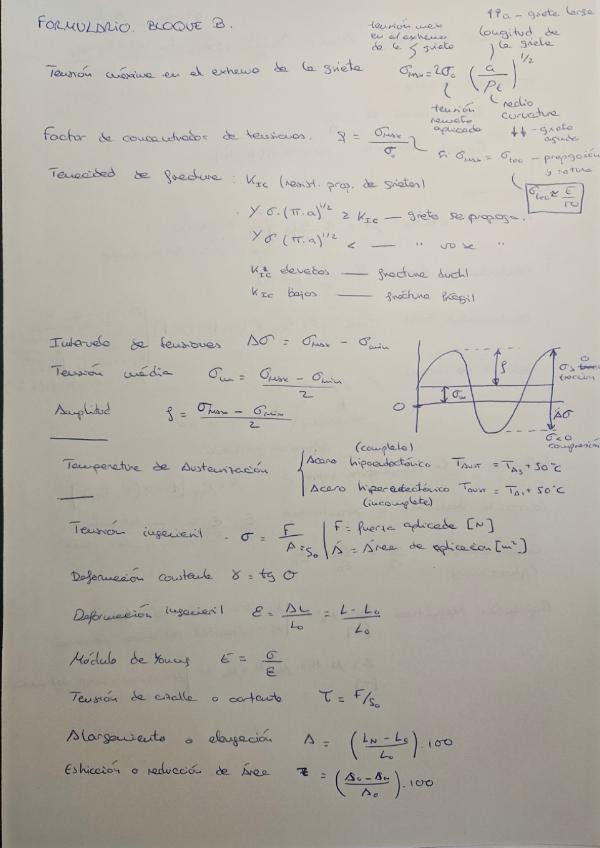 FORMULARIO. BLOQUE B.
↑↑a - grieta larga
tensión max en el extremo de la grieta
longitud de la grieta
Tensión máxima en el extremo de la grieta σmax = 2σ₀ (a/ρt)^1/2
tensión remota aplicada
radio curvatura
↓↓ - grieta aguda
Factor de concentrador de tensiones. ρ = σmax/σ₀
Si σmax = σteo - propagación y rotura
σteo ≈ E/10
Tenacidad de fractura: KIC (resist. prop. de grietas)
· Yσ·(π·a)^1/2 ≥ KIC — grieta se propaga.
Yσ(π·a)^1/2 < — " no se "
KIC elevados — fractura ductil
KIC bajos — fractura frágil
Intervalo de tensiones Δσ = σmax - σmin
Tensión média σm = (σmax - σmin)/2
Amplitud ρ = (σmax - σmin)/2
0
ρ
σm
σ>0
tracción
Δσ
σ<0
compresión
Temperatura de Austenización
(completa)
Acero hipoeutectónico TAust = TA3 + 50°C
Acero hipereutectónico TAust = TA1 + 50°C
(incompleta)
Tensión ingenieril - σ = F/A=S₀
F = fuerza aplicada [N]
A = Área de aplicación [m²]
Deformación constante γ = tg θ
Deformación ingenieril ε = ΔL/L₀ = (L - L₀)/L₀
Módulo de Young E = σ/ε
Tensión de cizalle o cortante τ = F/S₀
Alargamiento o elongación A = ((LN - L₀)/L₀).100
Estricción o reducción de Área Z = ((A₀ - AN)/A₀).100